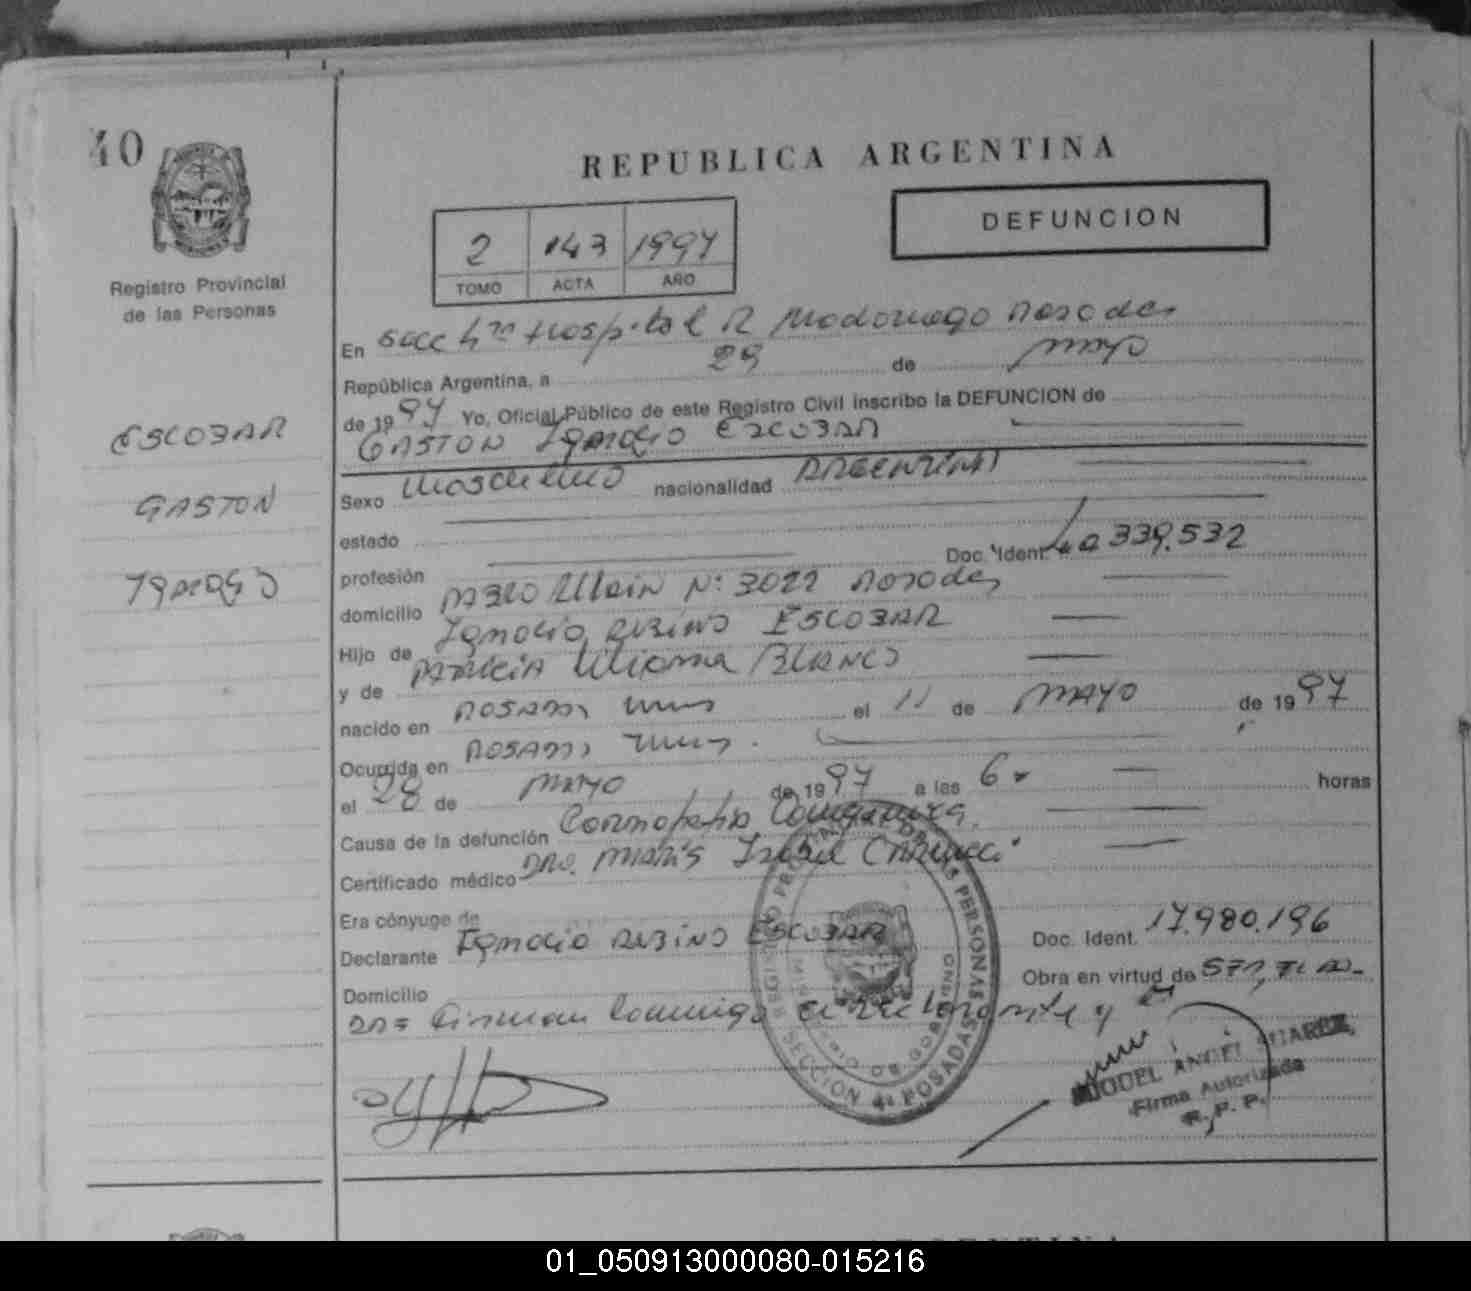 40
REPUBLICA ARGENTINA
DEFUNCION
2 143 1997
TOMO ACTA AÑO
Registro Provincial
de las Personas
ESCOBAR
GASTON
Ignacio
En Secc 4ta Hospital R Madariaga Posadas
República Argentina, a 29 de mayo
de 1997 Yo, Oficial Público de este Registro Civil inscribo la DEFUNCION de
GASTON Ignacio ESCOBAR
Sexo Masculino nacionalidad ARGENTINA
estado
profesión Doc. Ident. 339.532
domicilio N: 3022 Posadas
Hijo de Ignacio ALBINO ESCOBAR
y de PATRICIA Liliana BLANCO
nacido en POSADAS Mnes el 11 de MAYO de 1997
Ocurrida en POSADAS Mnes.
el 28 de MAYO de 1997 a las 6 horas
Causa de la defunción Congenita.
Certificado médico Dra. Isabel
Era cónyuge de
Declarante Ignacio ALBINO ESCOBAR Doc. Ident. 17.980.196
Domicilio Obra en virtud de
Firman conmigo el declarante y
REGISTRO PROVINCIAL DE LAS PERSONAS
MINISTERIO DE GOBIERNO
SECCION 4a POSADAS
ANGEL SUAREZ
Firma Autorizada
R. P. P.
01_050913000080-015216